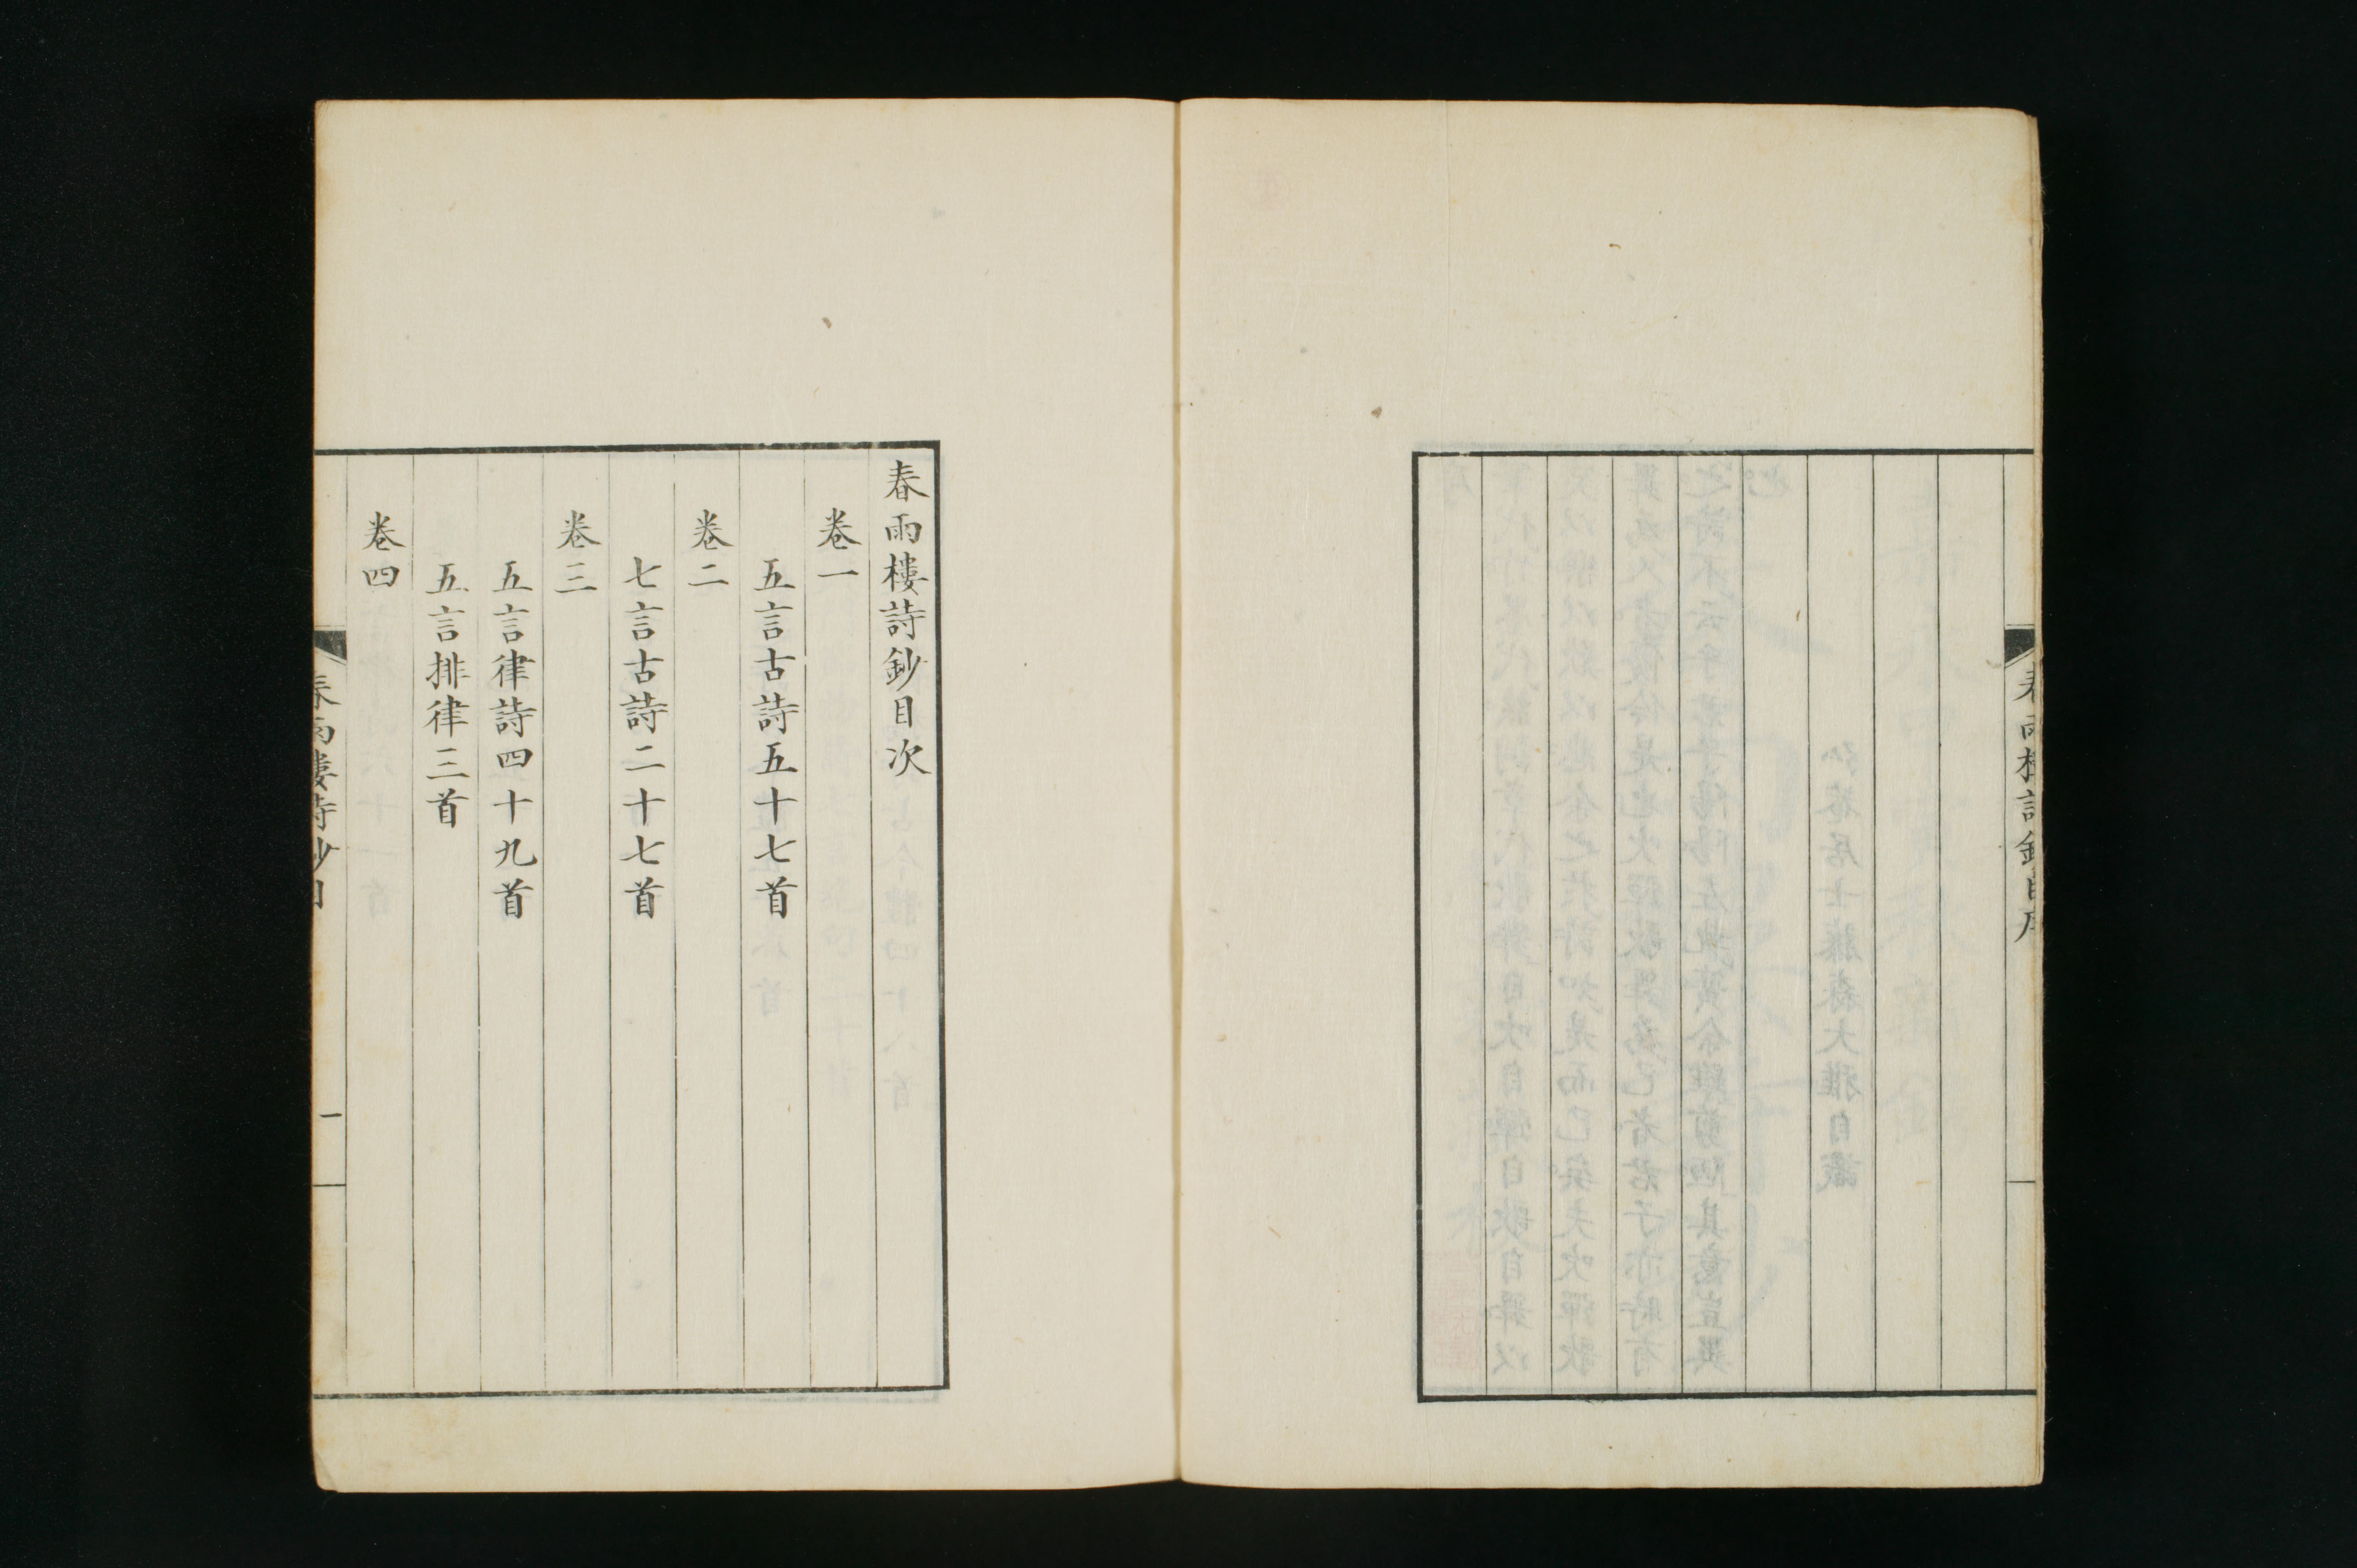 春雨樓詩鈔自序
春雨樓詩鈔目次
卷一
五言古詩五十七首
卷二
七言古詩二十七首
卷三
五言律詩四十九首
五言排律三首
卷四
春雨樓詩鈔目
一